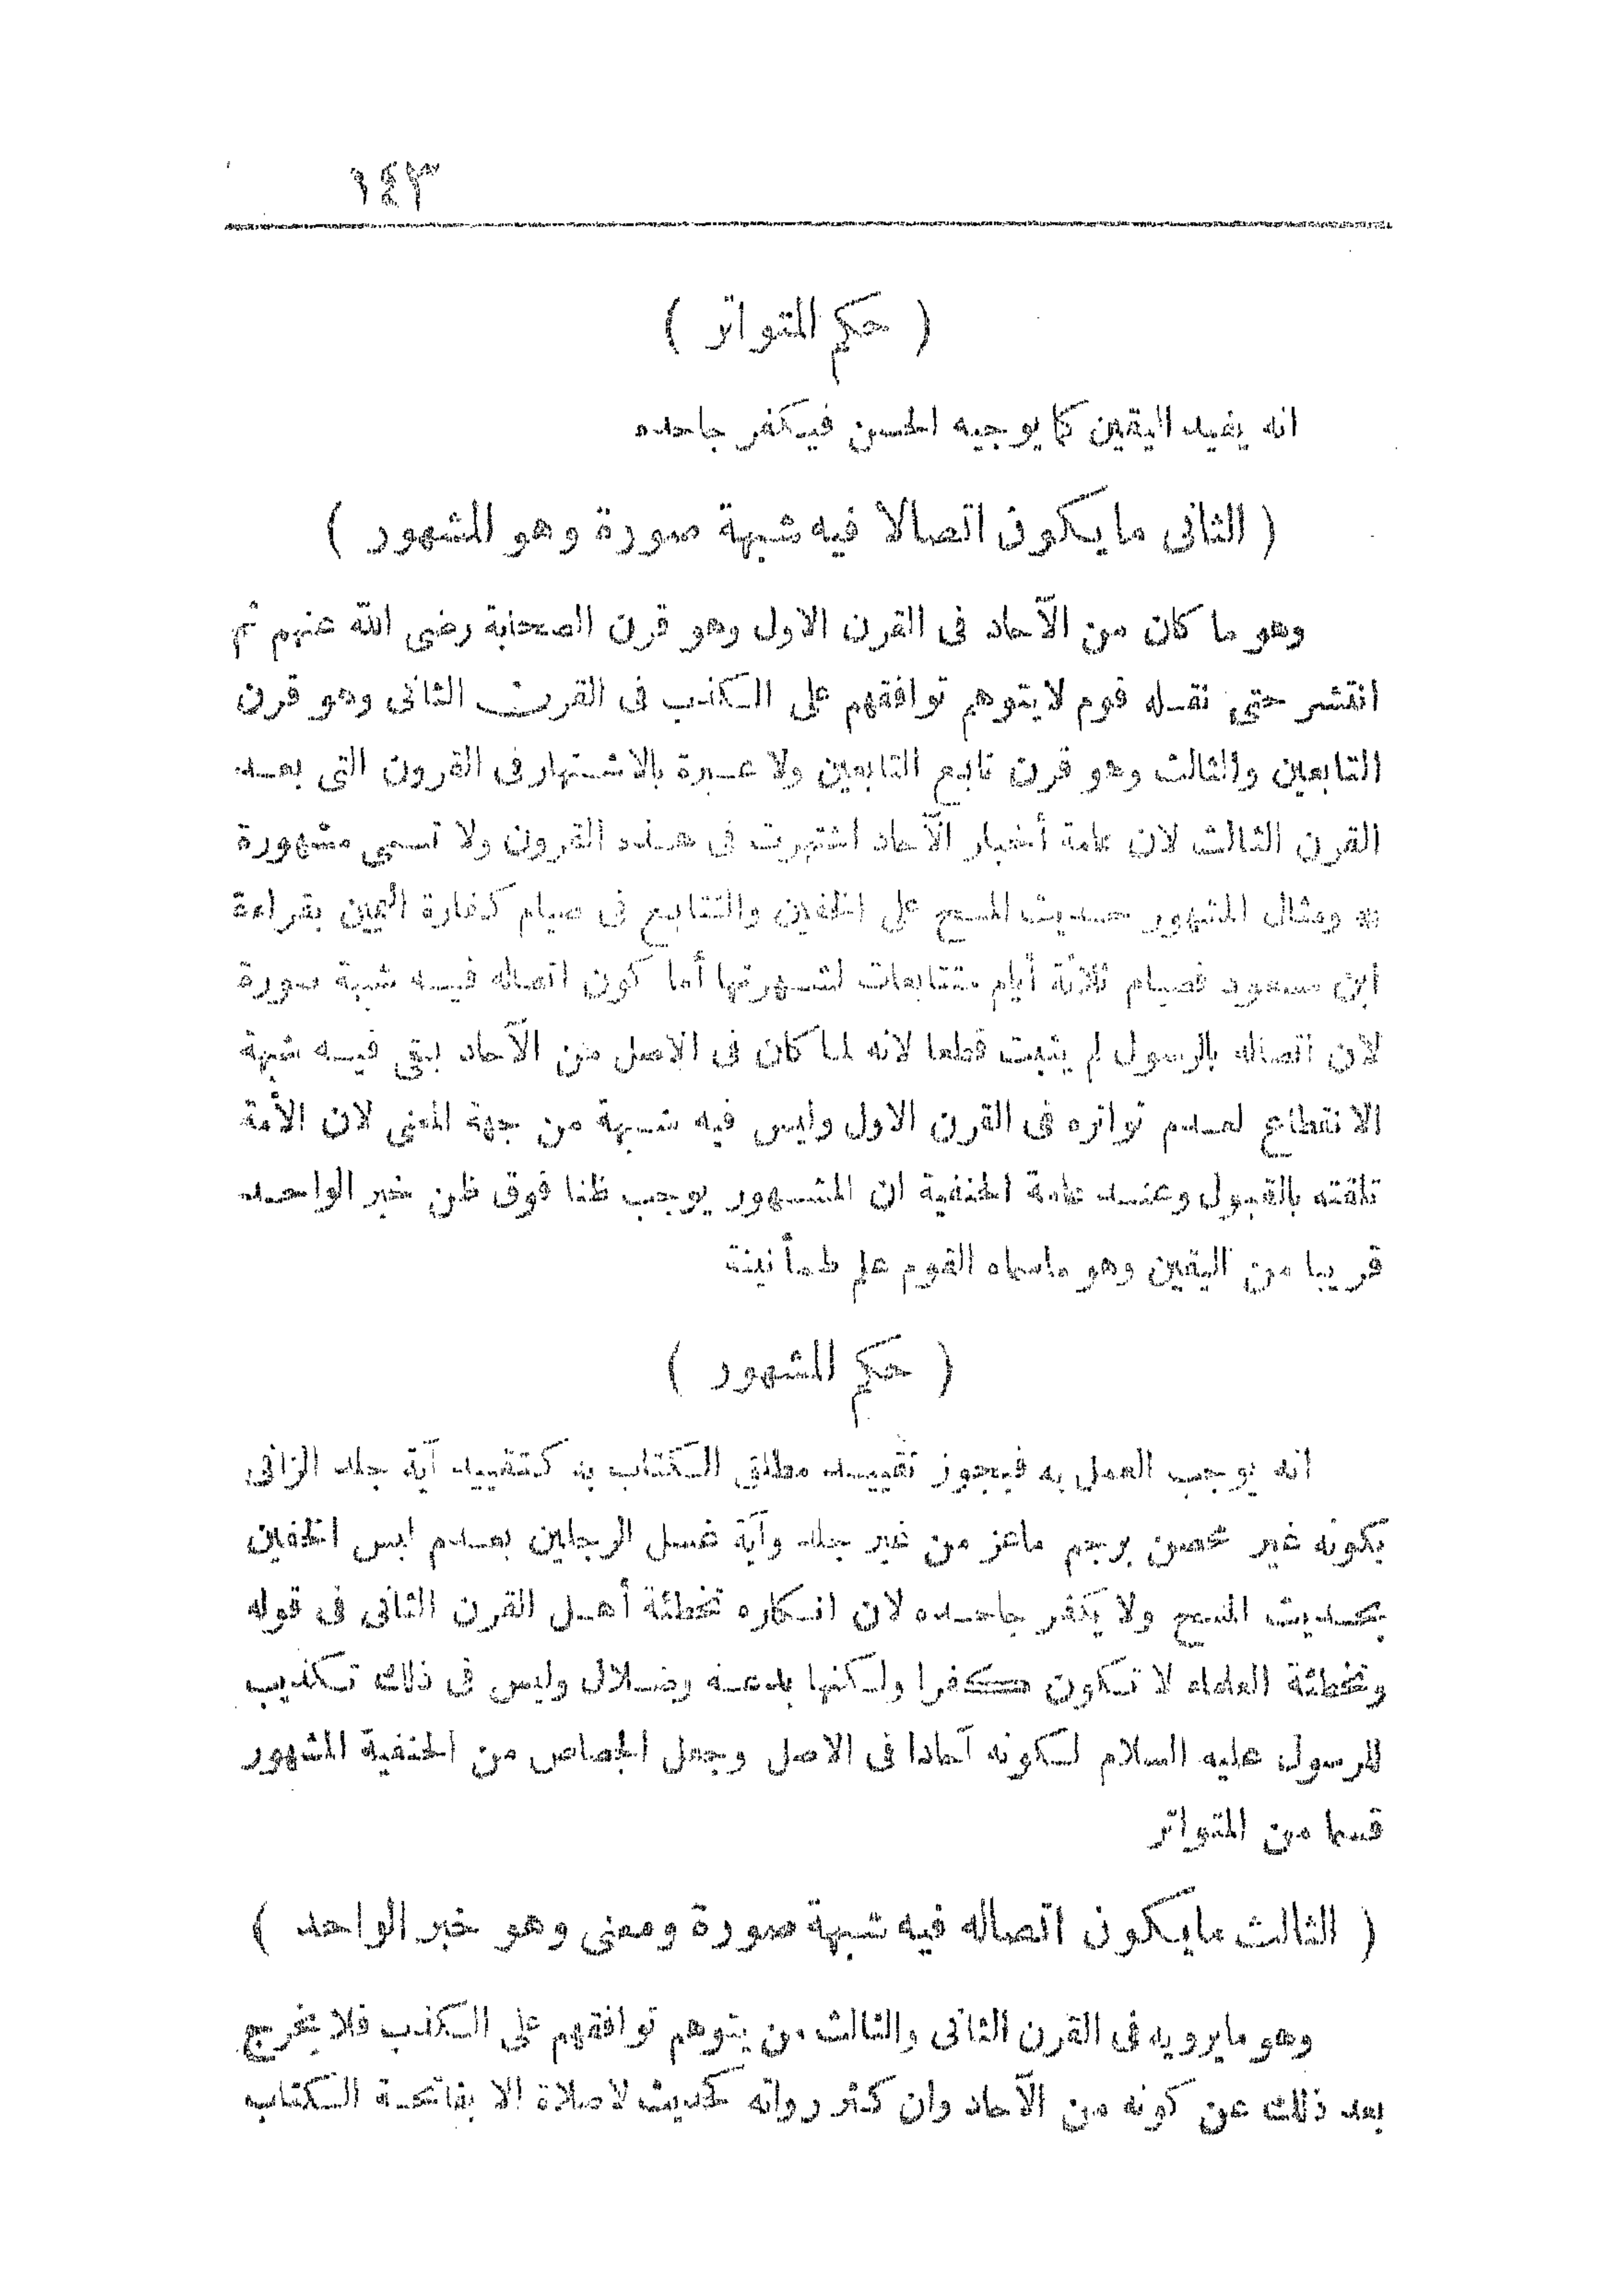 ١٤٣
( حكم المتواتر )
انه يفيد اليقين كما يوجبه الحس فيكفر جاحده
( الثانى ما يكون اتصالا فيه شبهة صورة وهو المشهور )
وهو ما كان من الآحاد فى القرن الاول وهو قرن الصحابة رضى الله عنهم ثم
انتشر حتى نقله قوم لا يتوهم توافقهم على الكذب فى القرن الثانى وهو قرن
التابعين والثالث وهو قرن تابع التابعين ولا عبرة بالاشتهار فى القرون التى بعد
القرن الثالث لان عامة أخبار الآحاد اشتهرت فى هذه القرون ولا تسمى مشهورة
به ومثال المشهور حديث المسح على الخفين والتتابع فى صيام كفارة اليمين بقراءة
ابن مسعود فصيام ثلاثة أيام متتابعات لشهرتها أما كون اتصاله فيه شبة صورة
لان اتصاله بالرسول لم يثبت قطعا لانه لما كان فى الاصل من الآحاد بقى فيه شبهة
الانقطاع لعدم تواتره فى القرن الاول وليس فيه شبهة من جهة المعنى لان الأمة
تلقته بالقبول وعند عامة الحنفية ان المشهور يوجب ظنا فوق ظن خبر الواحد
قريبا من اليقين وهو ماسماه القوم علم طمأنينة
( حكم المشهور )
انه يوجب العمل به فيجوز تقييد مطلق الكتاب به كتقييد آية جلد الزانى
بكونه غير محصن برجم ماعز من غير جلد وآية غسل الرجلين بعدم لبس الخفين
بحديث المسح ولا يكفر جاحده لان انكاره تخطئة أهل القرن الثانى فى قوله
وتخطئة العلماء لا تكون كفرا ولكنها بدعة وضلال وليس فى ذلك تكذيب
للرسول عليه السلام لكونه آحادا فى الاصل وجعل الجصاص من الحنفية المشهور
قسما من المتواتر
( الثالث مايكون اتصاله فيه شبهة صورة ومعنى وهو خبر الواحد )
وهو مايرويه فى القرن الثانى والثالث من يتوهم توافقهم على الكذب فلا يخرج
بعد ذلك عن كونه من الآحاد وان كثر رواته كحديث لاصلاة الا بفاتحة الكتاب